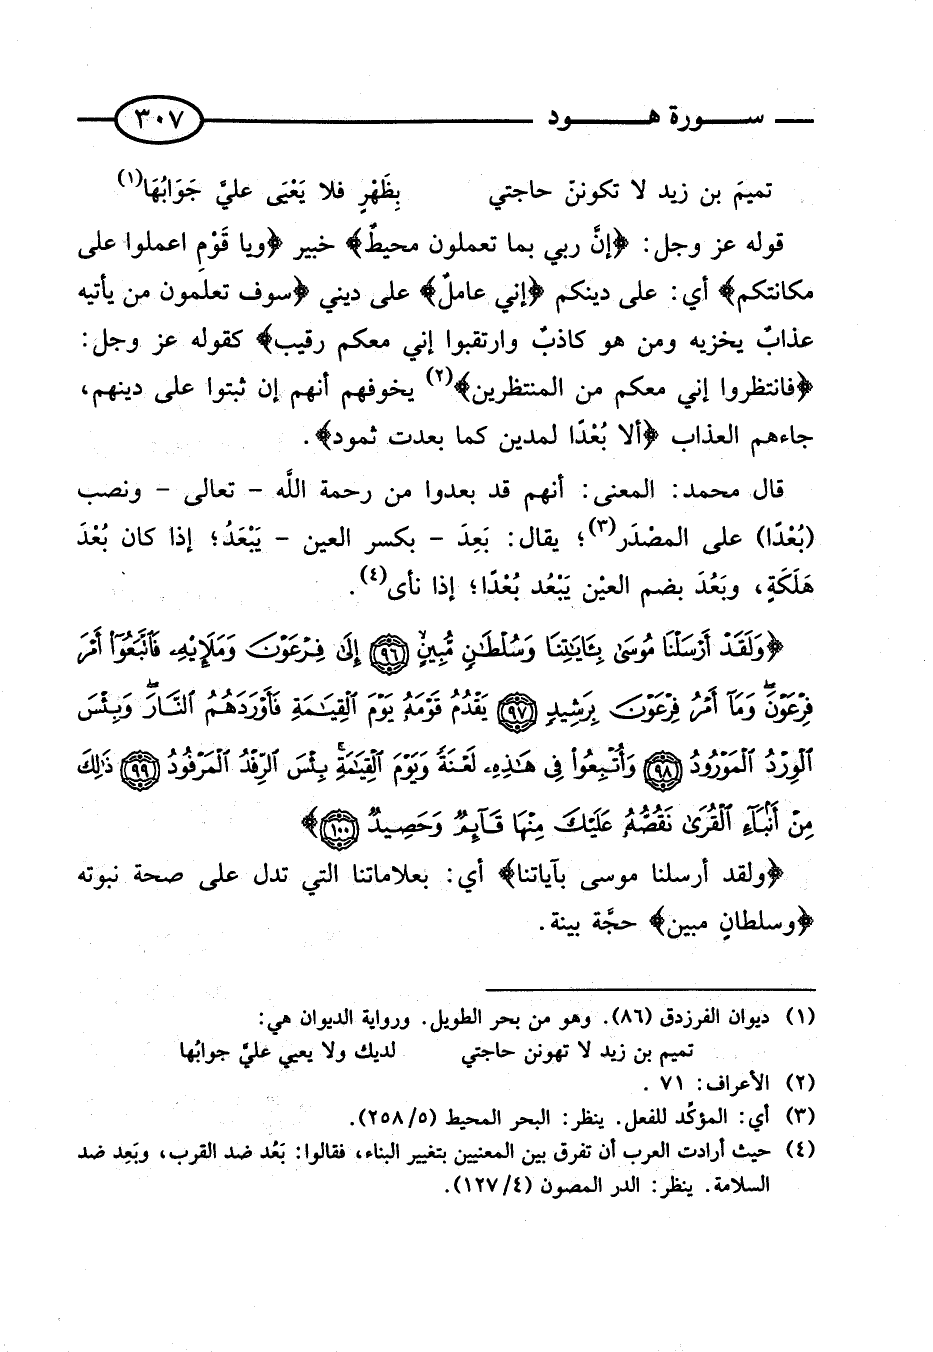 سورة هود ٣٠٧
تميمَ بن زيد لا تكوننّ حاجتي بِظَهْرٍ فلا يَعْيَى عليَّ جَوَابُهَا(١)
قوله عز وجل: ﴿إنَّ ربي بما تعملون محيطٌ﴾ خبير ﴿ويا قَوْمِ اعملوا على
مكانتكم﴾ أي: على دينكم ﴿إني عاملٌ﴾ على ديني ﴿سوف تعلمون من يأتيه
عذابٌ يخزيه ومن هو كاذبٌ وارتقبوا إني معكم رقيب﴾ كقوله عز وجل:
﴿فانتظروا إني معكم من المنتظرين﴾(٢) يخوفهم أنهم إن ثبتوا على دينهم،
جاءهم العذاب ﴿ألا بُعْدًا لمدين كما بعدت ثمود﴾.
قال محمد: المعنى: أنهم قد بعدوا من رحمة اللَّه - تعالى - ونصب
(بُعْدًا) على المصْدَر(٣)؛ يقال: بَعِدَ - بكسر العين - يَبْعَدُ؛ إذا كان بُعْدَ
هَلَكَةٍ، وبَعُدَ بضم العيْن يَبْعُد بُعْدًا؛ إذا نأى(٤).
﴿وَلَقَدْ أَرْسَلْنَا مُوسَىٰ بِـَٔايَـٰتِنَا وَسُلْطَـٰنٍ مُّبِينٍ ٩٦ إِلَىٰ فِرْعَوْنَ وَمَلَإِي۟هِۦ فَٱتَّبَعُوٓا۟ أَمْرَ
فِرْعَوْنَ ۖ وَمَآ أَمْرُ فِرْعَوْنَ بِرَشِيدٍ ٩٧ يَقْدُمُ قَوْمَهُۥ يَوْمَ ٱلْقِيَـٰمَةِ فَأَوْرَدَهُمُ ٱلنَّارَ ۖ وَبِئْسَ
ٱلْوِرْدُ ٱلْمَوْرُودُ ٩٨ وَأُتْبِعُوا۟ فِى هَـٰذِهِۦ لَعْنَةً وَيَوْمَ ٱلْقِيَـٰمَةِ ۚ بِئْسَ ٱلرِّفْدُ ٱلْمَرْفُودُ ٩٩ ذَٰلِكَ
مِنْ أَنۢبَآءِ ٱلْقُرَىٰ نَقُصُّهُۥ عَلَيْكَ مِنْهَا قَآئِمٌ وَحَصِيدٌ ١٠٠﴾
﴿ولقد أرسلنا موسى بآياتنا﴾ أي: بعلاماتنا التي تدل على صحة نبوته
﴿وسلطانٍ مبين﴾ حجَّة بينة.
(١) ديوان الفرزدق (٨٦). وهو من بحر الطويل. ورواية الديوان هي:
تميم بن زيد لا تهونن حاجتي لديك ولا يعيي عليَّ جوابُها
(٢) الأعراف: ٧١ .
(٣) أي: المؤكِّد للفعل. ينظر: البحر المحيط (٢٥٨/٥).
(٤) حيث أرادت العرب أن تفرق بين المعنيين بتغيير البناء، فقالوا: بَعُد ضد القرب، وبَعِد ضد
السلامة. ينظر: الدر المصون (١٢٧/٤).